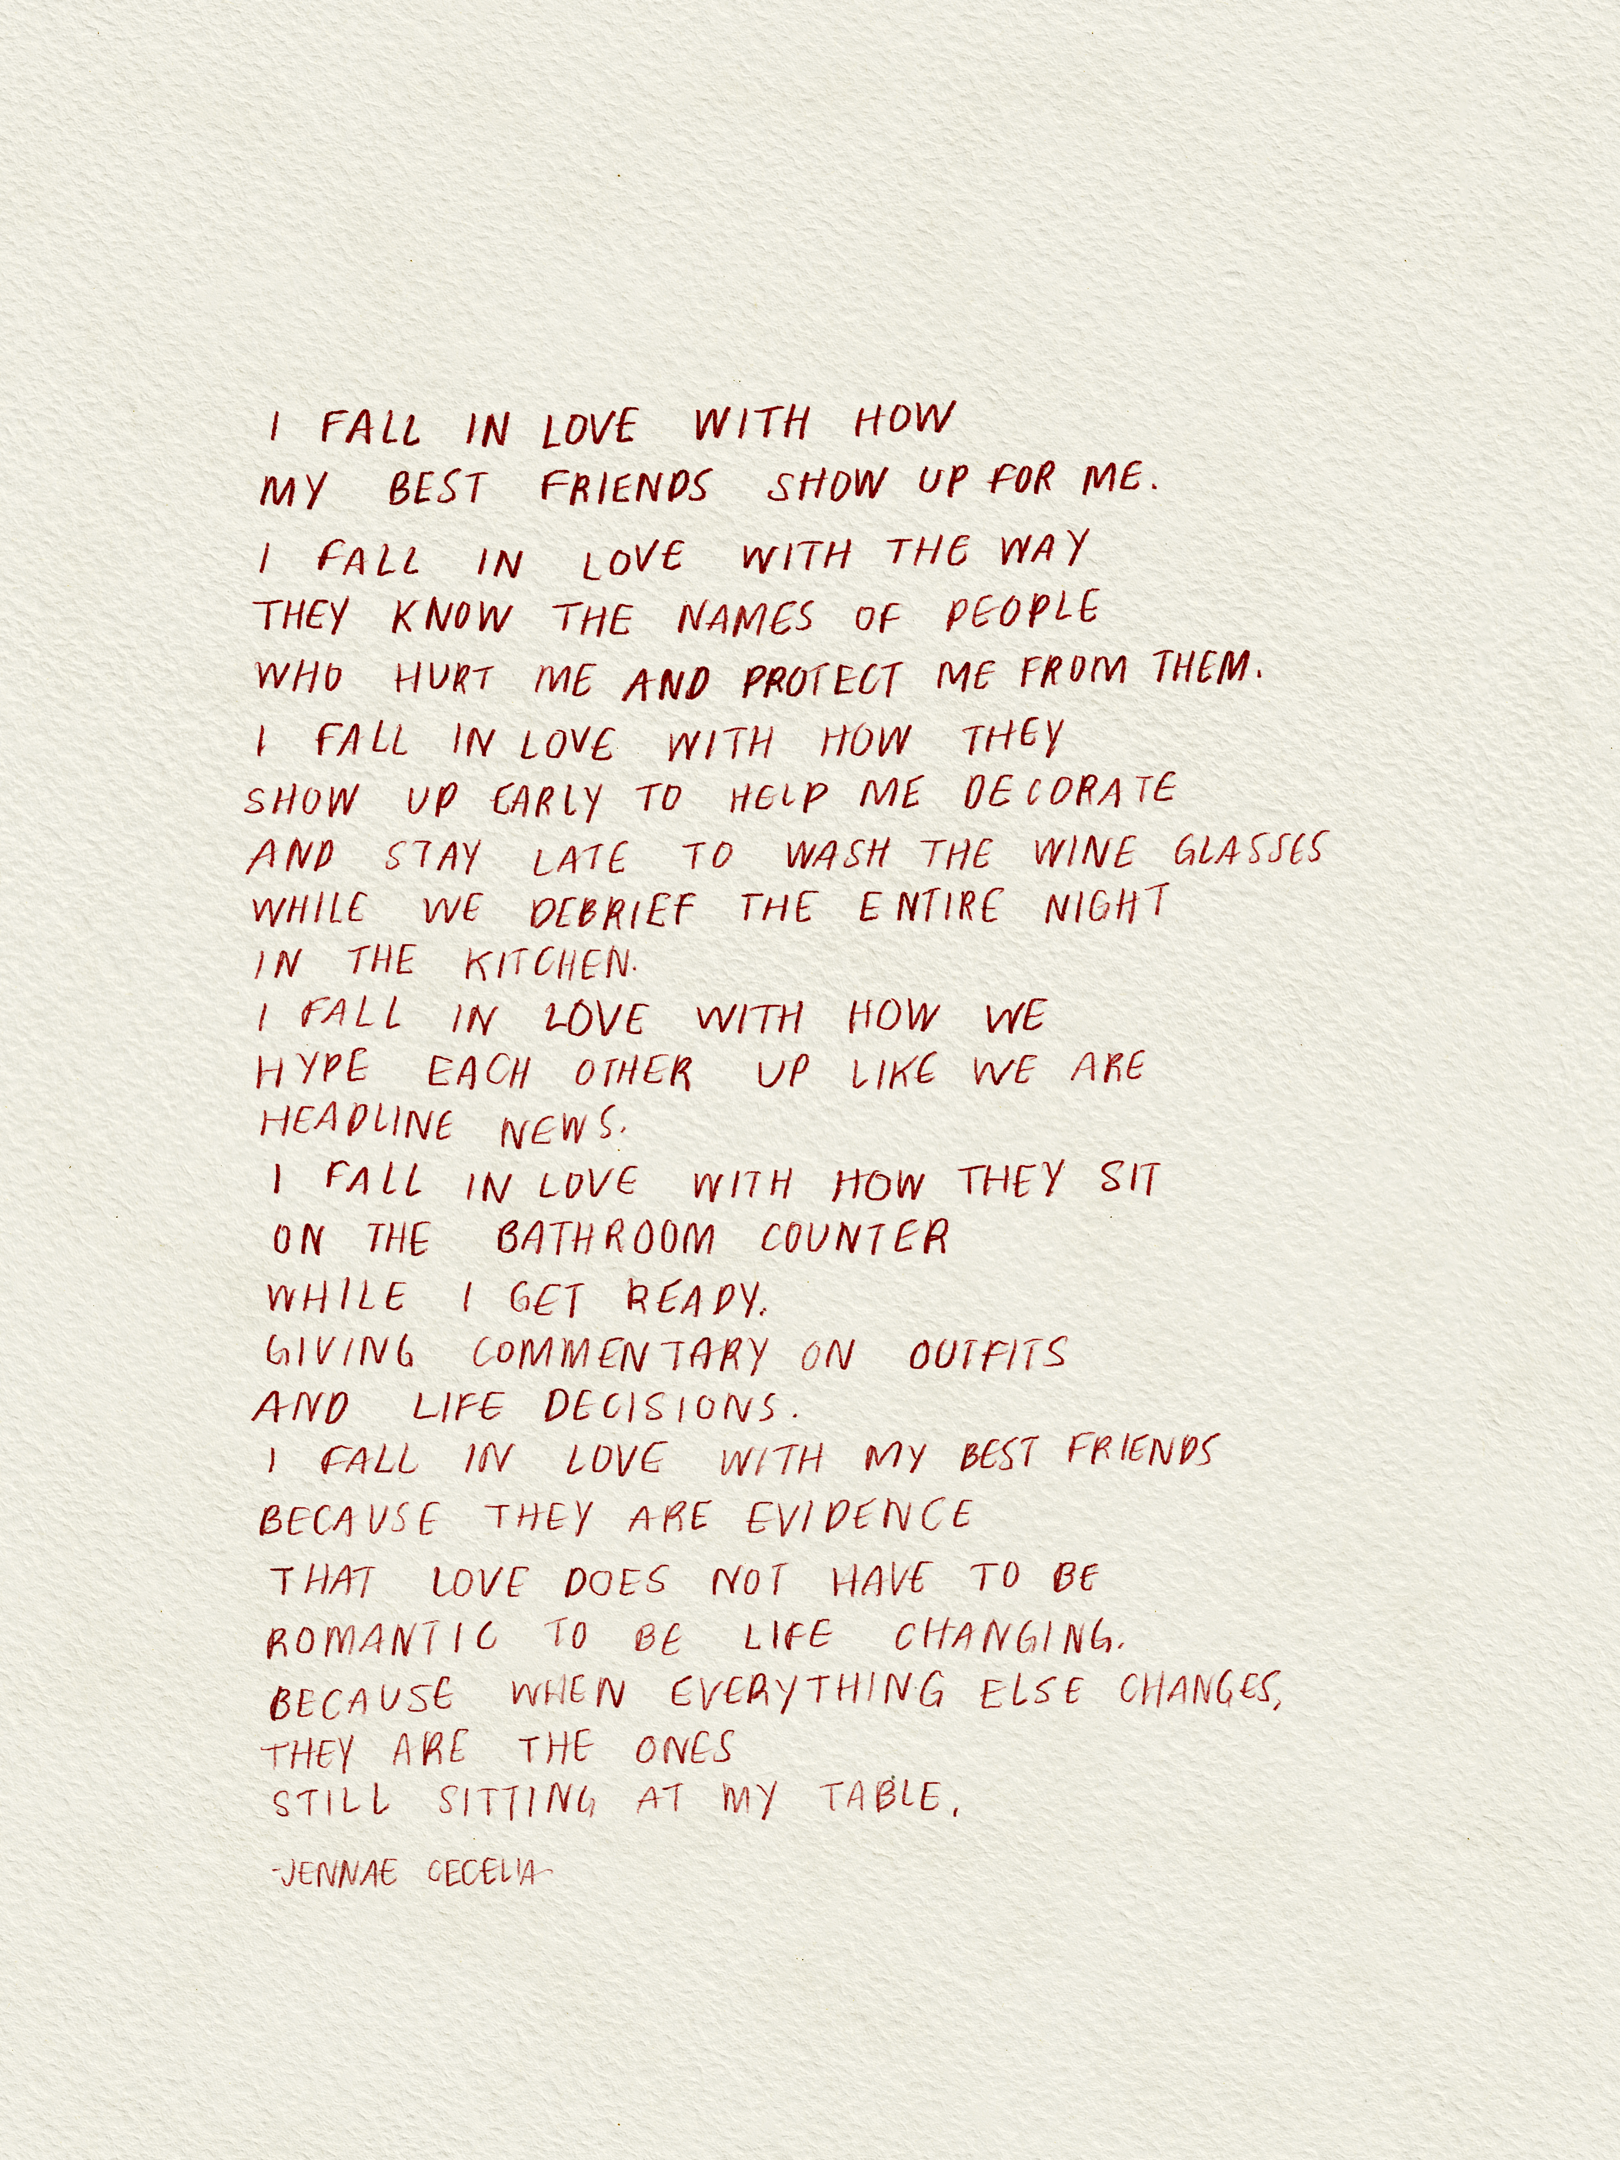 I FALL IN LOVE WITH HOW
MY BEST FRIENDS SHOW UP FOR ME.
I FALL IN LOVE WITH THE WAY
THEY KNOW THE NAMES OF PEOPLE
WHO HURT ME AND PROTECT ME FROM THEM.
I FALL IN LOVE WITH HOW THEY
SHOW UP EARLY TO HELP ME DECORATE
AND STAY LATE TO WASH THE WINE GLASSES
WHILE WE DEBRIEF THE ENTIRE NIGHT
IN THE KITCHEN.
I FALL IN LOVE WITH HOW WE
HYPE EACH OTHER UP LIKE WE ARE
HEADLINE NEWS.
I FALL IN LOVE WITH HOW THEY SIT
ON THE BATHROOM COUNTER
WHILE I GET READY.
GIVING COMMENTARY ON OUTFITS
AND LIFE DECISIONS.
I FALL IN LOVE WITH MY BEST FRIENDS
BECAUSE THEY ARE EVIDENCE
THAT LOVE DOES NOT HAVE TO BE
ROMANTIC TO BE LIFE CHANGING.
BECAUSE WHEN EVERYTHING ELSE CHANGES,
THEY ARE THE ONES
STILL SITTING AT MY TABLE.
-JENNAE CECELIA-